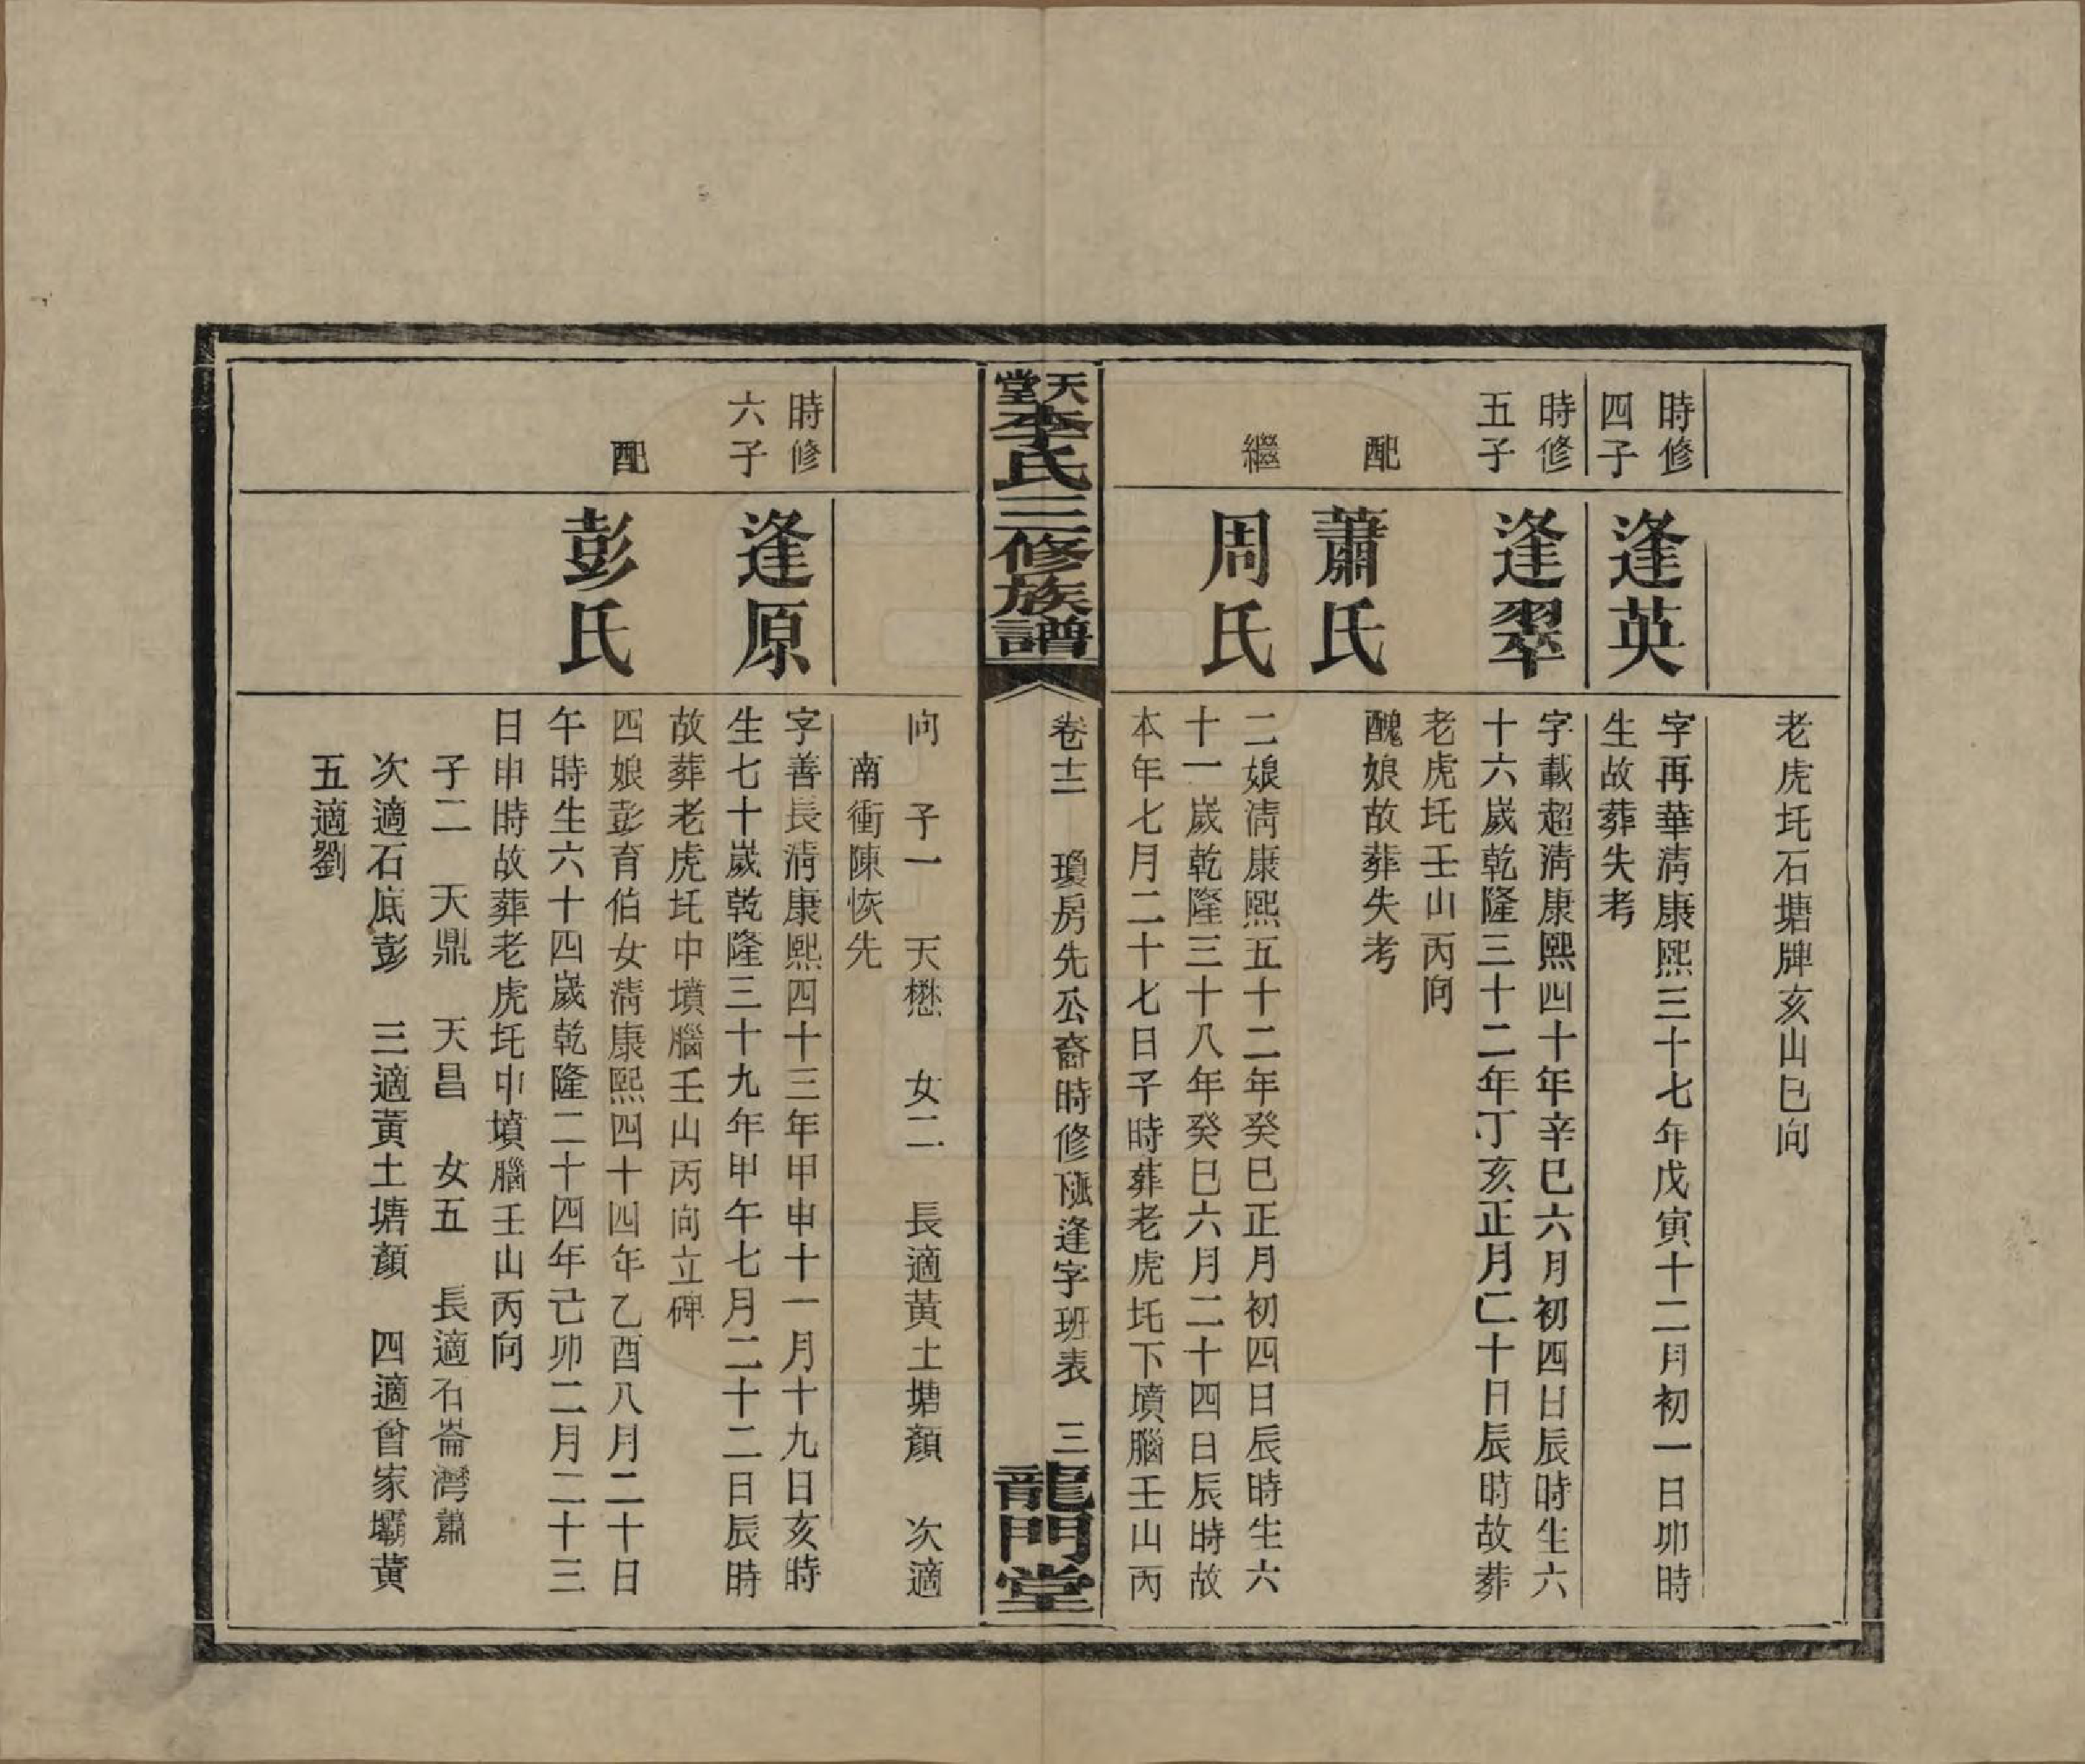 老虎坉石塘牌亥山巳向
時修
四子
逢英
字再華清康熙三十七年戊寅十二月初一日卯時
生故葬失考
時修
五子
逢翠
字載超清康熙四十年辛巳六月初四日辰時生六
十六歲乾隆三十二年丁亥正月二十日辰時故葬
老虎坉壬山丙向
配
蕭氏
醜娘故葬失考
繼
周氏
二娘清康熙五十二年癸巳正月初四日辰時生六
十一歲乾隆三十八年癸巳六月二十四日辰時故
本年七月二十七日子時葬老虎坉下墳腦壬山丙
天堂李氏三修族譜
卷十三 瓊房先公裔時修 逢字班表 三
龍門堂
向 子一 天懋 女二 長適黃土塘顏 次適
南衝陳恢先
時修
六子
逢原
字善長清康熙四十三年甲申十一月十九日亥時
生七十歲乾隆三十九年甲午七月二十二日辰時
故葬老虎坉中墳腦壬山丙向立碑
配
彭氏
四娘彭育伯女清康熙四十四年乙酉八月二十日
午時生六十四歲乾隆二十四年己卯二月二十三
日申時故葬老虎坉中墳腦壬山丙向
子二 天鼎 天昌 女五 長適石崙灣蕭
次適石底彭 三適黃土塘顏 四適曾家壩黃
五適劉